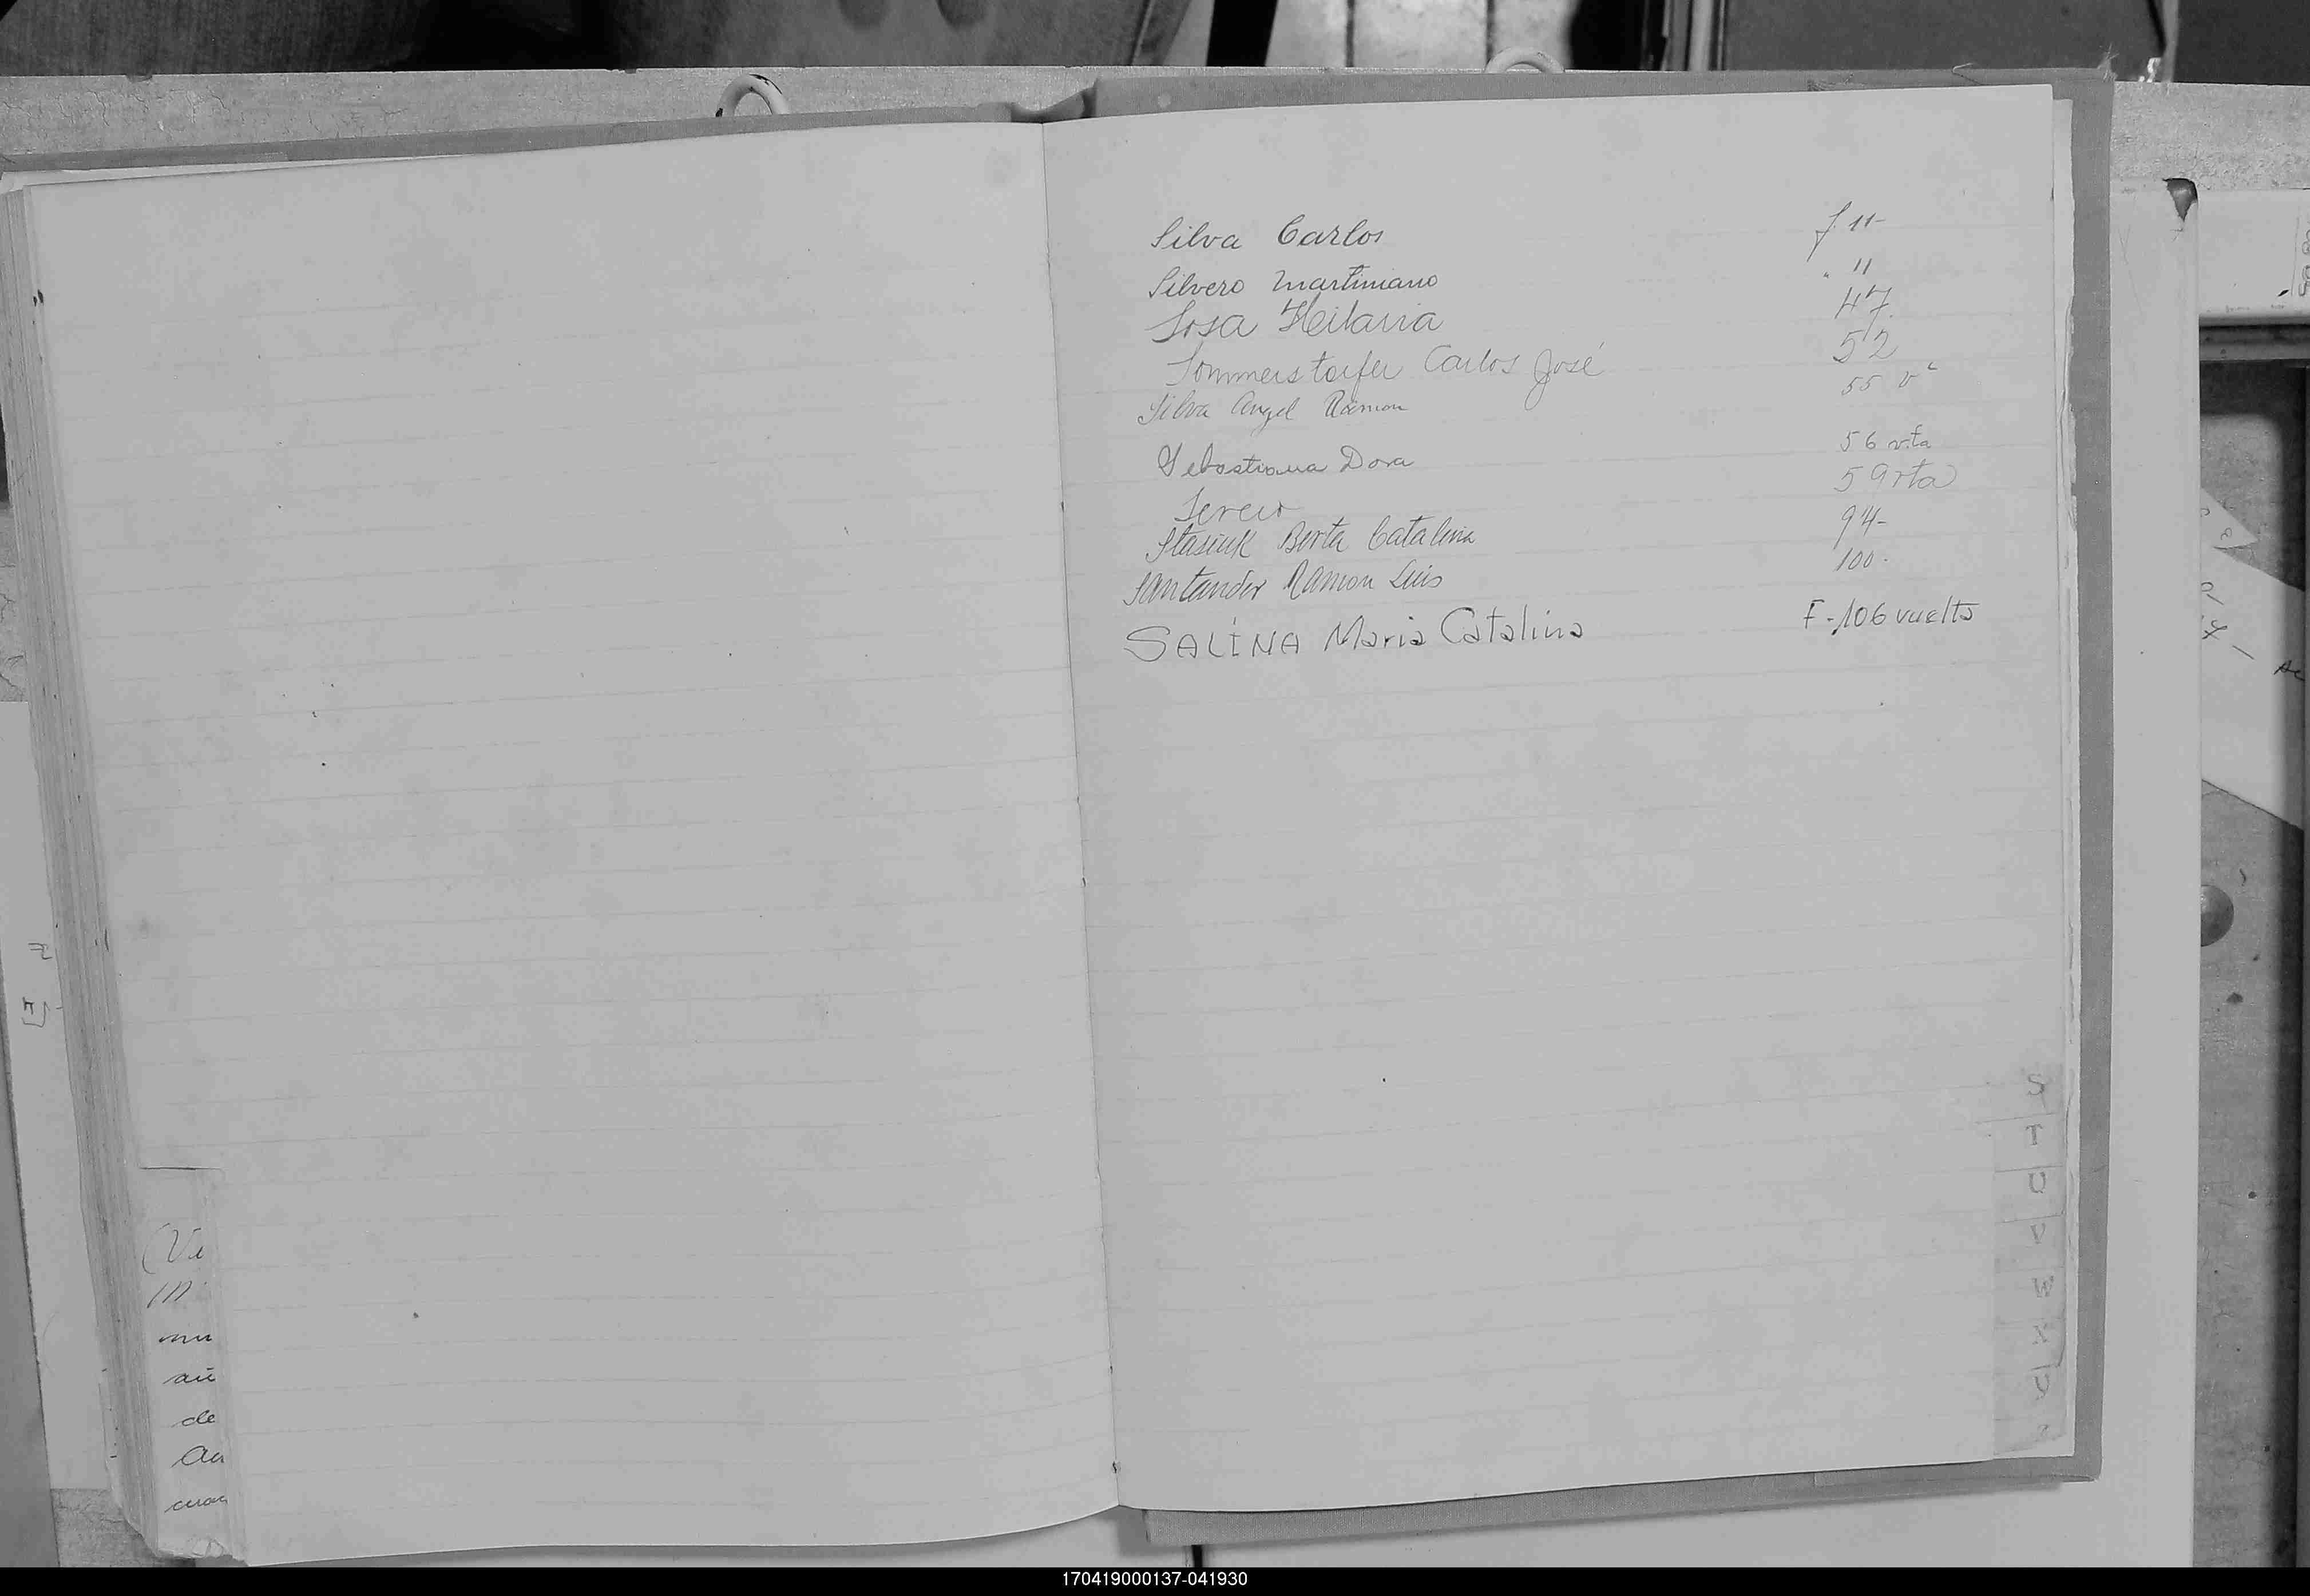 Silva Carlos f. 11-
Silvero Martiniano " 11
Sosa Hilaria 47.
Sommerstorfer Carlos José 52
Silva Angel Ramon 55 vª
Sebastiana Dora 56 vta
59 rta
Stasiuk Berta Catalina 94-
Santander Ramon Luis 100.
SALINA Maria Catalina F-106 vuelta
S
T
U
V
W
X
(Vi
m
mu
de
170419000137-041930